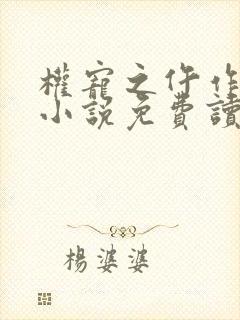 權寵之仵作
小說免費讀
楊婆婆